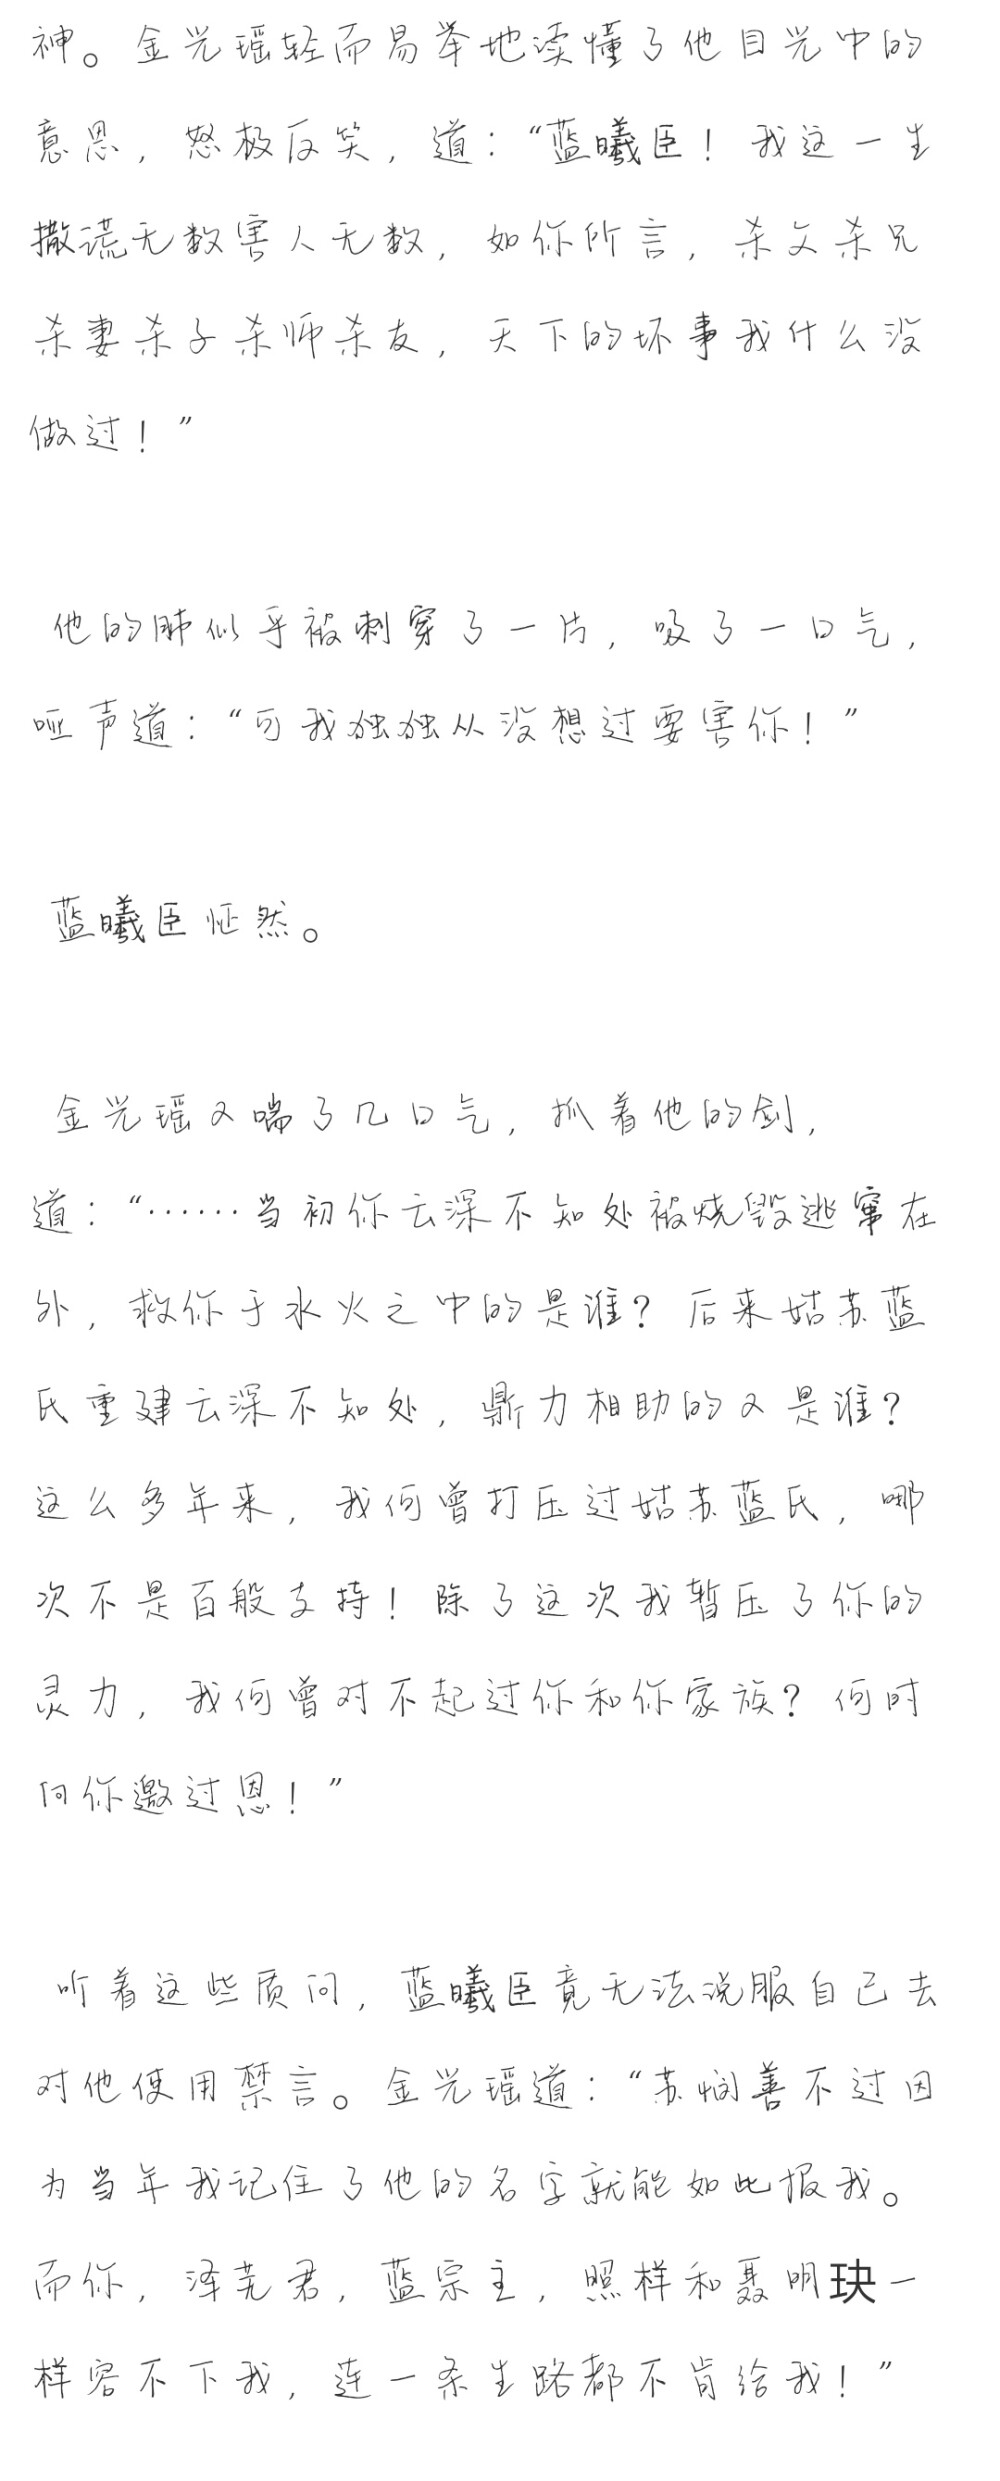 神。金光瑶轻而易举地读懂了他目光中的
意思，怒极反笑，道：“蓝曦臣！我这一生
撒谎无数害人无数，如你所言，杀父杀兄
杀妻杀子杀师杀友，天下的坏事我什么没
做过！”
他的肺似乎被刺穿了一片，吸了一口气，
哑声道：“可我独独从没想过要害你！”
蓝曦臣怔然。
金光瑶又喘了几口气，抓着他的剑，
道：“……当初你云深不知处被烧毁逃窜在
外，救你于水火之中的是谁？后来姑苏蓝
氏重建云深不知处，鼎力相助的又是谁？
这么多年来，我何曾打压过姑苏蓝氏，哪
次不是百般支持！除了这次我暂压了你的
灵力，我何曾对不起过你和你家族？何时
向你邀过恩！”
听着这些质问，蓝曦臣竟无法说服自己去
对他使用禁言。金光瑶道：“苏悯善不过因
为当年我记住了他的名字就能如此报我。
而你，泽芜君，蓝宗主，照样和聂明玦一
样容不下我，连一条生路都不肯给我！”